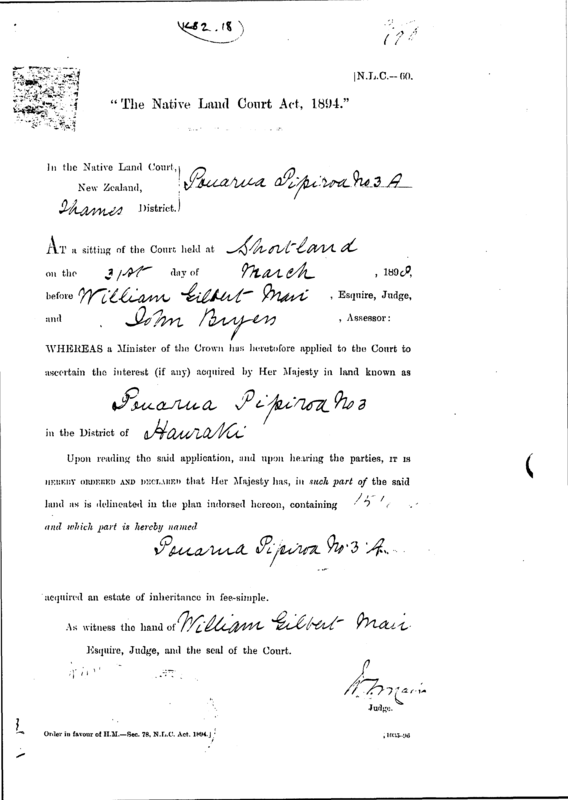 K52.18
[N.L.C.—60.
"The Native Land Court Act, 1894."
In the Native Land Court,
New Zealand,
Thames District.
Pouarua Pipiroa No 3 A
AT a sitting of the Court held at Shortland
on the 31st day of March , 1898,
before William Gilbert Mair , Esquire, Judge,
and John Bryers , Assessor:
WHEREAS a Minister of the Crown has heretofore applied to the Court to
ascertain the interest (if any) acquired by Her Majesty in land known as
Pouarua Pipiroa No 3
in the District of Hauraki
Upon reading the said application, and upon hearing the parties, IT IS
HEREBY ORDERED AND DECLARED that Her Majesty has, in such part of the said
land as is delineated in the plan indorsed hereon, containing 151
and which part is hereby named
Pouarua Pipiroa No 3 A
acquired an estate of inheritance in fee-simple.
As witness the hand of William Gilbert Mair
Esquire, Judge, and the seal of the Court.
W. G. Mair
Judge.
Order in favour of H.M.—Sec. 78, N.L.C. Act, 1894.]